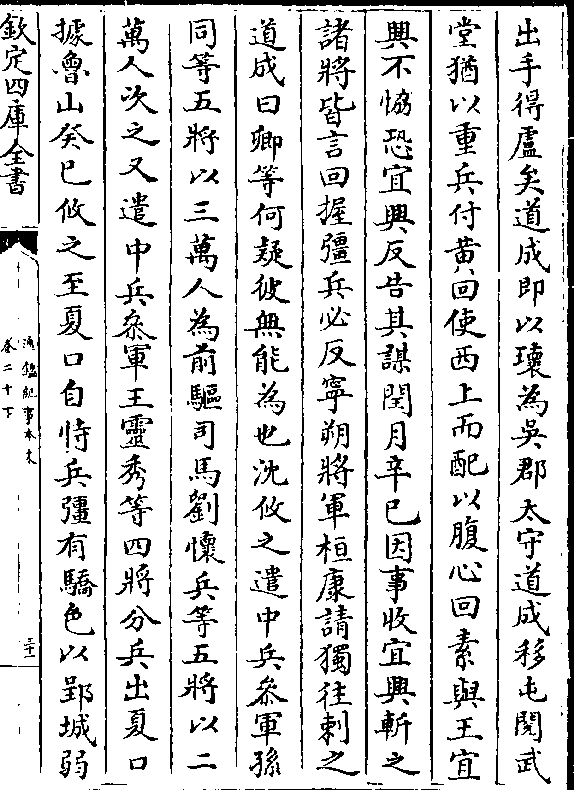 出手得盧矣道成即以瓌為吳郡太守道成移屯閱武
堂猶以重兵付黄回使西上而配以腹心回素與王宜
興不恊恐宜興反告其謀閏月辛巳因事收宜興斬之
諸將皆言回握彊兵必反寧朔將軍桓康請獨往刺之
道成曰卿等何疑彼無能為也沈攸之遣中兵叅軍孫
同等五將以三萬人為前驅司馬劉懷兵等五將以二
萬人次之又遣中兵叅軍王靈秀等四將分兵出夏口
據魯山癸巳攸之至夏口自恃兵彊有驕色以郢城弱
欽定四庫全書
通鑑紀事本末
卷二十下